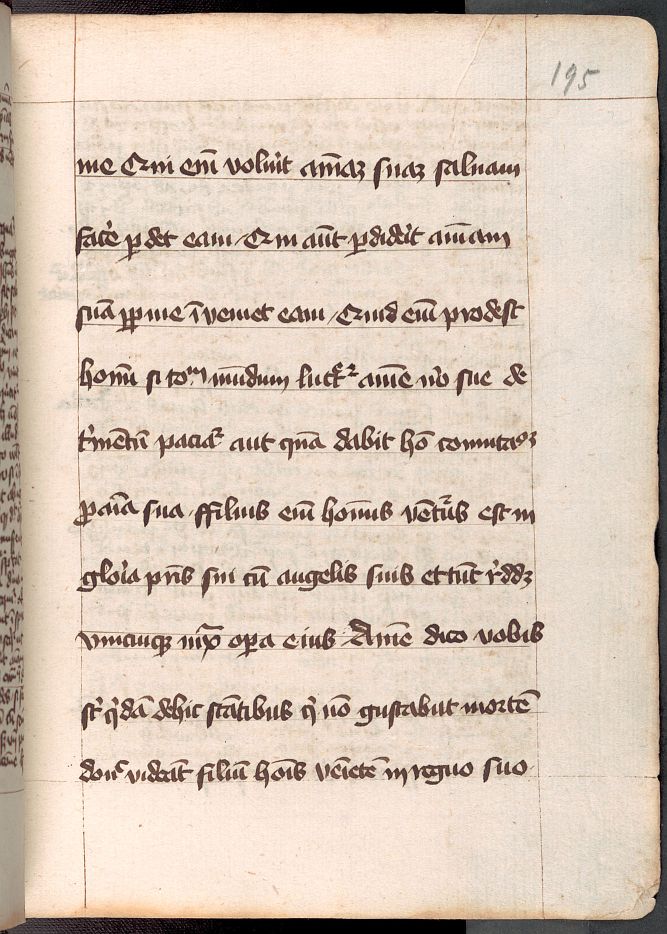 195
me Qui em̄ voluit aīaꝫ suaꝫ saluam
facͤe ꝑdet eam / Qui aūt ꝑdidit aīam
suā ꝓpt me īveniet eam / Quid em̄ prodest
homi si totū mūdum lucret aīme vͦo sue de
tͥmentū paciat aut quā dabit hō comutacōꝫ
ꝓ aīa sua / ffilius em̄ homīs ventͧus est in
gloͥa pnͥs sui cū angelis suis et tūt rͤddꝫ
vnicuiqꝫ iux oꝑa eius / Amē dico vobis
st qͥdā de hic stātibus qͥ nō gustabūt mortē
donͨ videāt filiū hoīs veīetē in regno suo